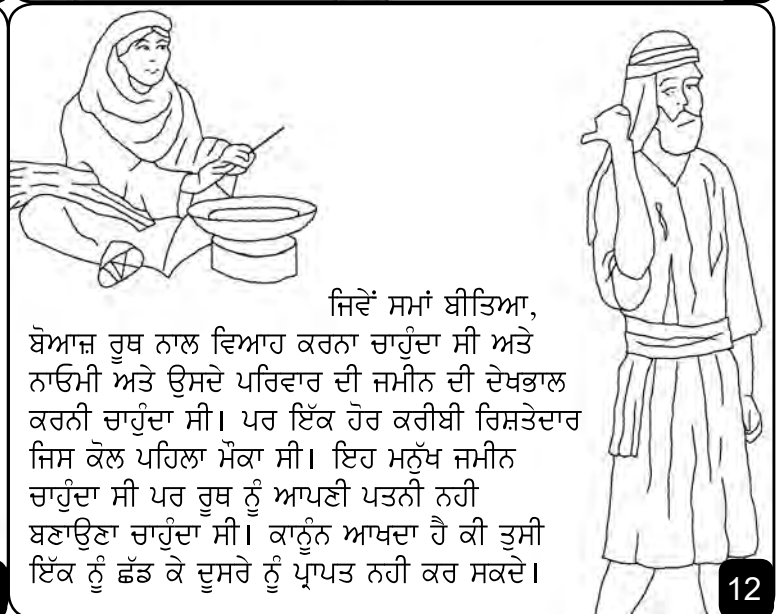 ਜਿਵੇਂ ਸਮਾਂ ਬੀਤਿਆ,
ਬੋਆਜ਼ ਰੂਥ ਨਾਲ ਵਿਆਹ ਕਰਨਾ ਚਾਹੁੰਦਾ ਸੀ ਅਤੇ
ਨਾਓਮੀ ਅਤੇ ਉਸਦੇ ਪਰਿਵਾਰ ਦੀ ਜਮੀਨ ਦੀ ਦੇਖਭਾਲ
ਕਰਨੀ ਚਾਹੁੰਦਾ ਸੀ। ਪਰ ਇੱਕ ਹੋਰ ਕਰੀਬੀ ਰਿਸ਼ਤੇਦਾਰ
ਜਿਸ ਕੋਲ ਪਹਿਲਾ ਮੌਕਾ ਸੀ। ਇਹ ਮਨੁੱਖ ਜਮੀਨ
ਚਾਹੁੰਦਾ ਸੀ ਪਰ ਰੂਥ ਨੂੰ ਆਪਣੀ ਪਤਨੀ ਨਹੀ
ਬਣਾਉਣਾ ਚਾਹੁੰਦਾ ਸੀ। ਕਾਨੂੰਨ ਆਖਦਾ ਹੈ ਕੀ ਤੁਸੀ
ਇੱਕ ਨੂੰ ਛੱਡ ਕੇ ਦੂਸਰੇ ਨੂੰ ਪ੍ਰਾਪਤ ਨਹੀ ਕਰ ਸਕਦੇ।
12